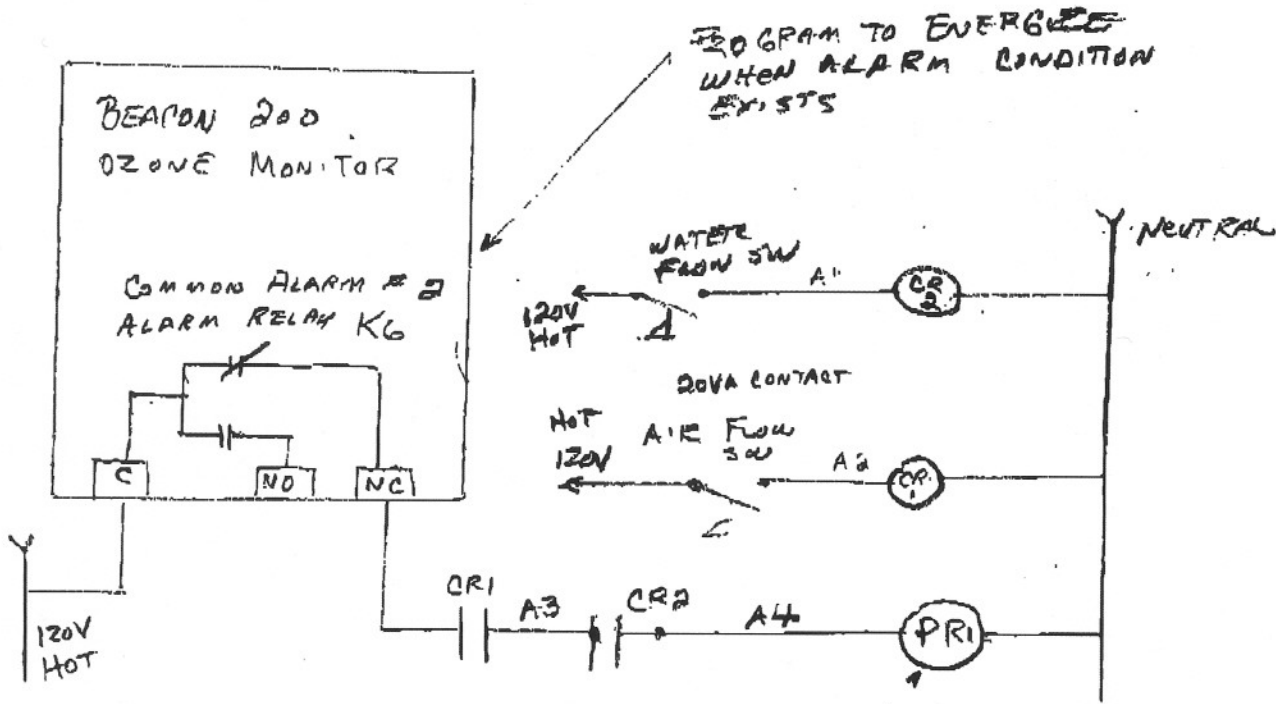 PROGRAM TO ENERGIZE
WHEN ALARM CONDITION
EXISTS
BEACON 200
OZONE MONITOR
COMMON ALARM # 2
ALARM RELAY K6
C
NO
NC
120V
HOT
WATER
FLOW SW
120V
HOT
A1
CR
2
NEUTRAL
20VA CONTACT
HOT
120V
AIR FLOW
SW
A2
CR
1
CR1
A3
CR2
A4
PR1